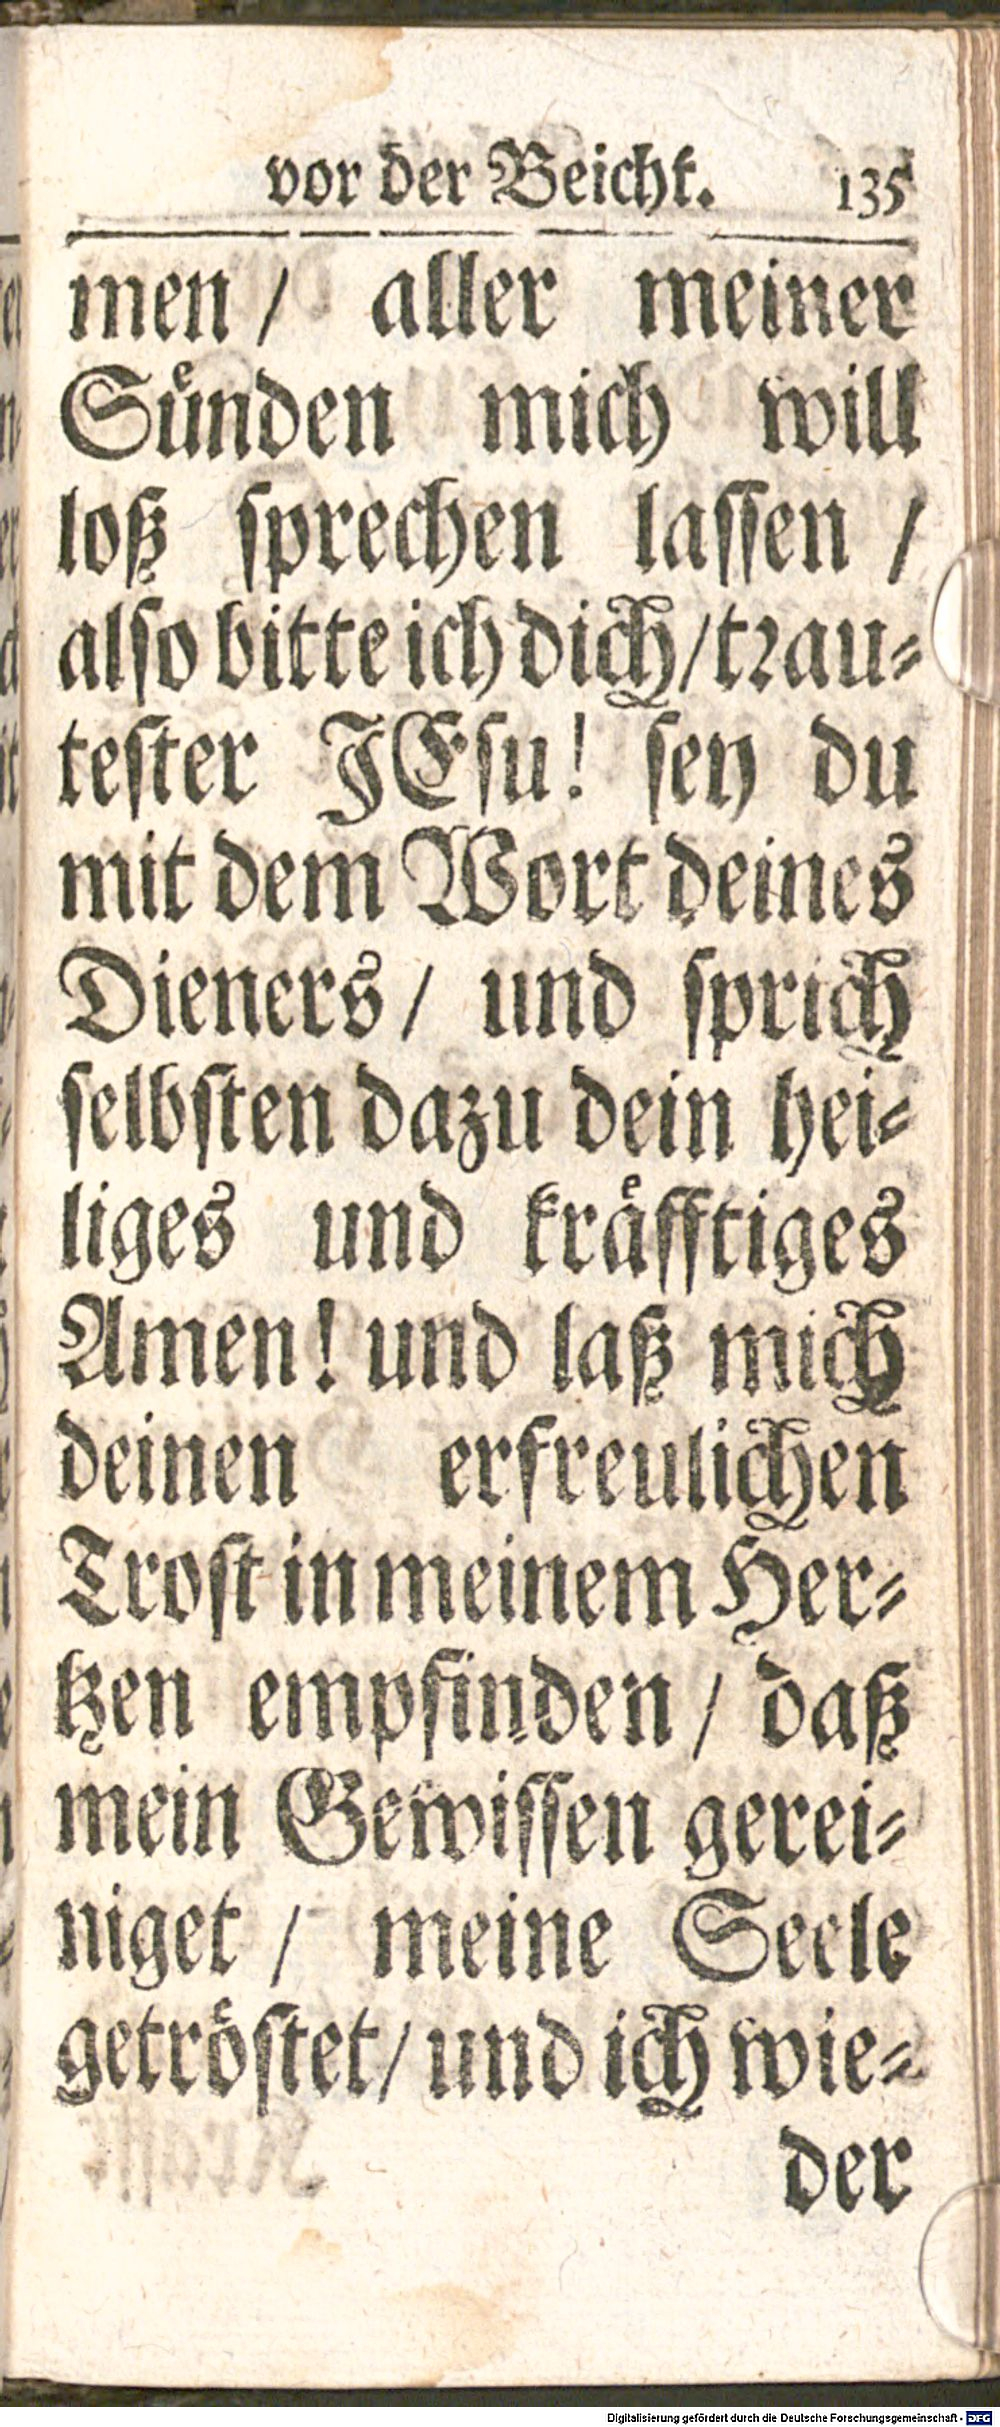 vor der Beicht. 135
men / aller meiner
Suͤnden mich will
loß ſprechen laſſen /
alſo bitte ich dich / trau⸗
teſter JEſu! ſey du
mit dem Wort deines
Dieners / und ſprich
ſelbſten dazu dein hei⸗
liges und kraͤfftiges
Amen! und laß mich
deinen erfreulichen
Troſt in meinem Her⸗
tzen empfinden / daß
mein Gewiſſen gerei⸗
niget / meine Seele
getroͤſtet / und ich wie⸗
der
Digitalisierung gefördert durch die Deutsche Forschungsgemeinschaft - DFG